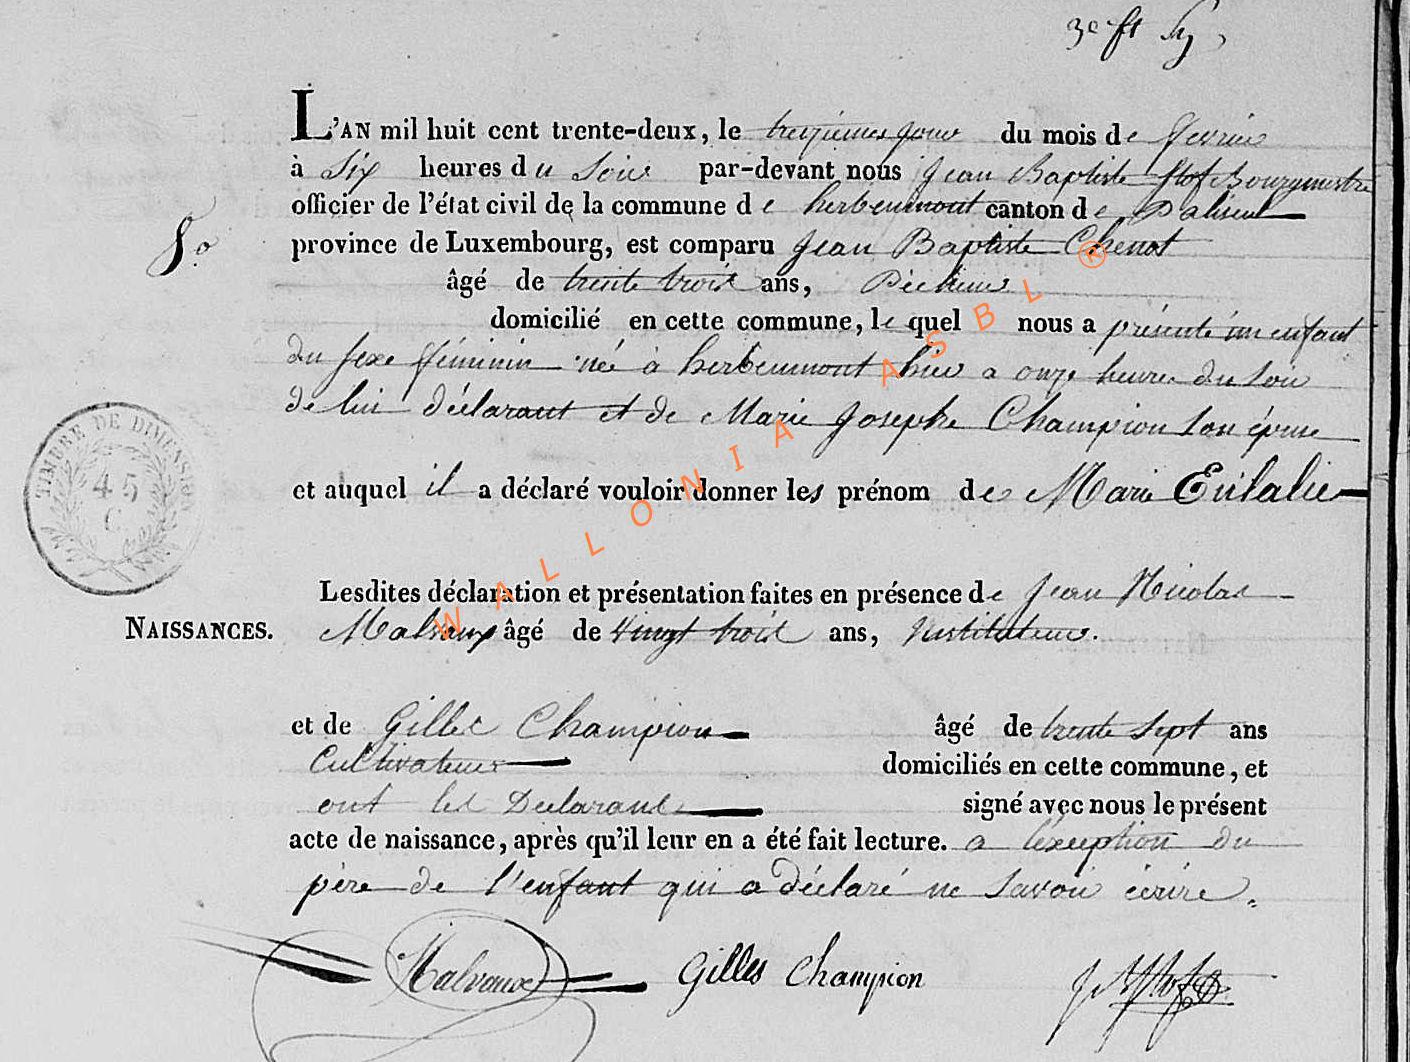 3e ft
L'AN mil huit cent trente-deux, le treizieme jour du mois de fevrier
à Six heures du Soir par-devant nous Jean Baptiste Bourgmestre
officier de l'état civil de la commune de herbeumont canton de Paliseul
8.° province de Luxembourg, est comparu Jean Baptiste Chenot
âgé de trente trois ans, Pècheur
domicilié en cette commune, le quel nous a présenté un enfant
du sexe féminin née à herbeumont hier a onze heures du Soir
de lui déclarant et de Marie Josephe Champion Son épouse
TIMBRE DE DIMENSION
45
C
et auquel il a déclaré vouloir donner les prénom de Marie Eulalie
Lesdites déclaration et présentation faites en présence de Jean Nicolas
NAISSANCES. Malvaux âgé de Vingt trois ans, Instituteur.
et de Gilles Champion âgé de trente Sept ans
Cultivateur domiciliés en cette commune, et
ont les Déclarans signé avec nous le présent
acte de naissance, après qu'il leur en a été fait lecture. a l'exception du
père de l'enfant qui a déclaré ne Savoir écrire.
Malvaux Gilles Champion
WALLONIA ASBL ®